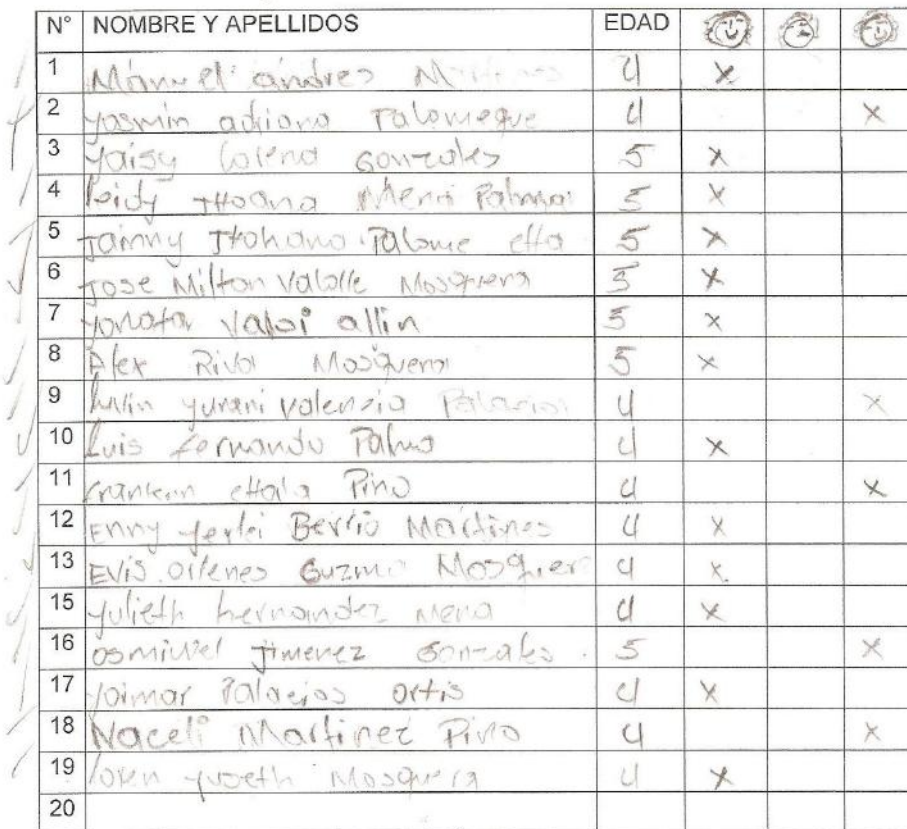 N° NOMBRE Y APELLIDOS EDAD
1 Manuel andres 4 x
2 yasmin adriana Palomeque 4 x
3 yaisy lorena gonzales 5 x
4 leidy JHoana Mena Palma 5 x
5 Jainny Jhohana Palome 5 x
6 Jose Milton Valolle Mosquera 5 x
7 allin 5 x
8 Alex Riva Mosquera 5 x
9 yurani valenzia Palacios 4 x
10 Luis fernando Palma 4 x
11 Pino 4 x
12 Enny yerlei Berrio Martines 4 x
13 EVis Guzman Mosquer 4 x
15 yulieth hernandez Mena 4 x
16 Jimenez Gonzales 5 x
17 yoimar Palacios ortis 4 x
18 Naceli Martinez Pino 4 x
19 loren Mosquera 4 x
20